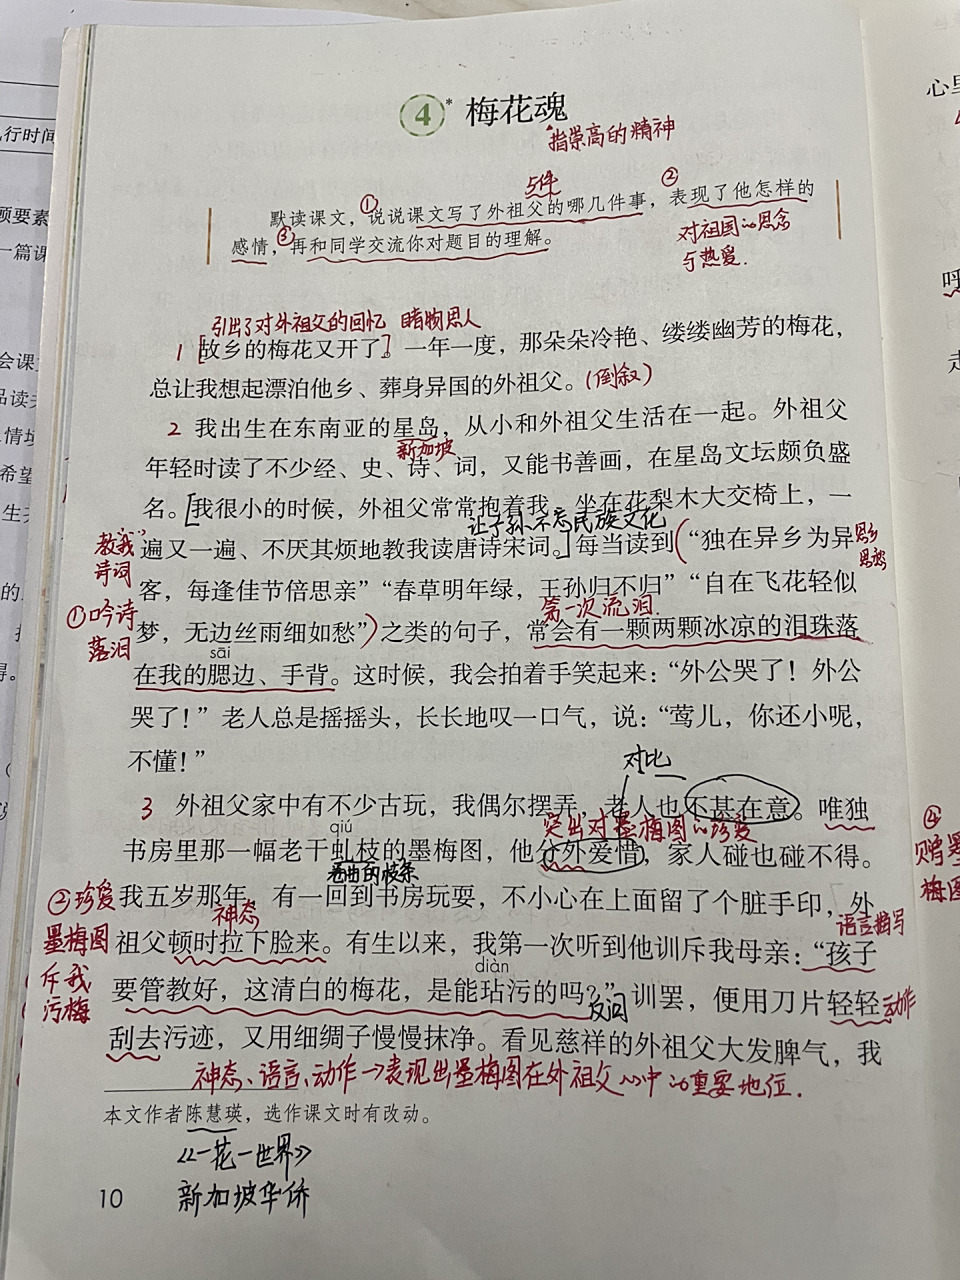 ④* 梅花魂
指崇高的精神
5件
①
②
默读课文，说说课文写了外祖父的哪几件事，表现了他怎样的
感情，再和同学交流你对题目的理解。
③
对祖国的思念
与热爱.
引出了对外祖父的回忆 睹物思人
1 [故乡的梅花又开了。]一年一度，那朵朵冷艳、缕缕幽芳的梅花，
总让我想起漂泊他乡、葬身异国的外祖父。(倒叙)
2 我出生在东南亚的星岛，从小和外祖父生活在一起。外祖父
新加坡
年轻时读了不少经、史、诗、词，又能书善画，在星岛文坛颇负盛
名。[我很小的时候，外祖父常常抱着我，坐在花梨木大交椅上，一
让子孙不忘民族文化
遍又一遍、不厌其烦地教我读唐诗宋词。]每当读到(“独在异乡为异
教我
诗词
思乡
客，每逢佳节倍思亲”“春草明年绿，王孙归不归”“自在飞花轻似
第一次流泪.
①吟诗
落泪
梦，无边丝雨细如愁”)之类的句子，常会有一颗两颗冰凉的泪珠落
sāi
在我的腮边、手背。这时候，我会拍着手笑起来：“外公哭了！外公
哭了！”老人总是摇摇头，长长地叹一口气，说：“莺儿，你还小呢，
不懂！”
对比
3 外祖父家中有不少古玩，我偶尔摆弄，老人也不甚在意。唯独
qiú
突出对墨梅图的珍爱
书房里那一幅老干虬枝的墨梅图，他分外爱惜，家人碰也碰不得。
弯曲的枝条
②珍爱
墨梅图
斥我
污梅
我五岁那年，有一回到书房玩耍，不小心在上面留了个脏手印，外
神态
语言描写
祖父顿时拉下脸来。有生以来，我第一次听到他训斥我母亲：“孩子
diàn
要管教好，这清白的梅花，是能玷污的吗？”训罢，便用刀片轻轻
反问
动作
刮去污迹，又用细绸子慢慢抹净。看见慈祥的外祖父大发脾气，我
神态、语言、动作→表现出墨梅图在外祖父心中的重要地位.
本文作者陈慧瑛，选作课文时有改动。
《一花一世界》
10
新加坡华侨
行时间
顾要素
一篇课
会课
品读
情境
希望
生
的
得。
心里
呼
走
④
赠墨
梅图